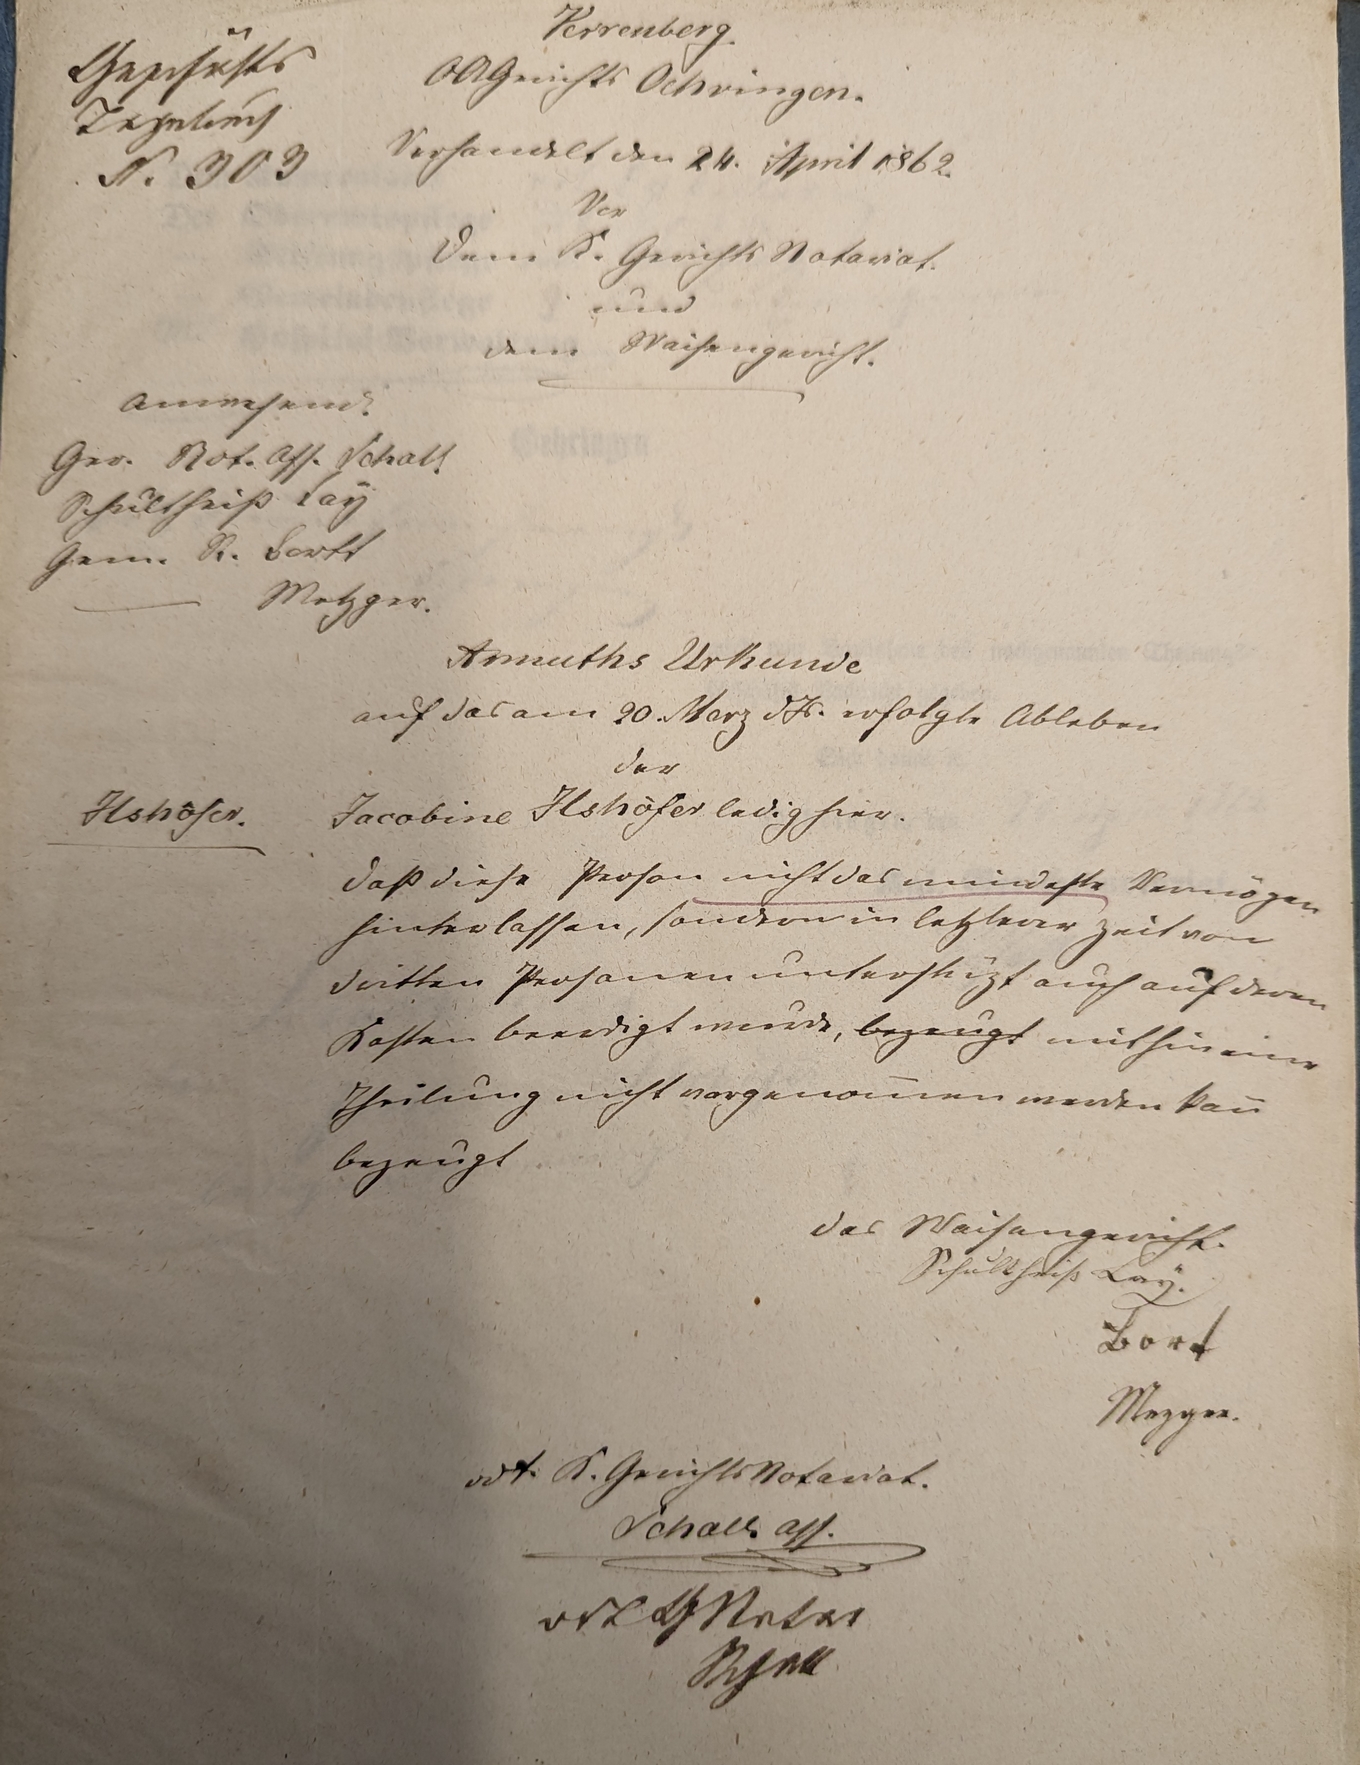 Verrenberg.
Geschäfts
OAGerichts Oehringen.
Tagebuch
N. 303
Verhandelt den 24. April 1862.
Vor
dem K. GerichtsNotariat.
und
dem Waisengericht.
Anwesend:
Ger. Not. Ass. Schall
Schultheiß Lay
Gem. R. Bortt
Metzger.
Armuths Urkunde
auf das am 20. Merz d Js. erfolgte Ableben
der
Ilshöfer.
Jacobine Ilshöfer ledig hier.
Daß diese Person nicht das mindeste Vermögen
hinterlassen, sondern in letzterer Zeit von
dritten Personen unterstüzt auch auf deren
Kosten beerdigt wurde, bezeugt mithin eine
Theilung nicht vorgenom̅en werden kan̅
bezeugt
das Waisengericht.
Schultheiß Lay.
Bort
Mezger.
vdt. K. GerichtsNotariat.
Schall. Ass.
vdt. GNotar